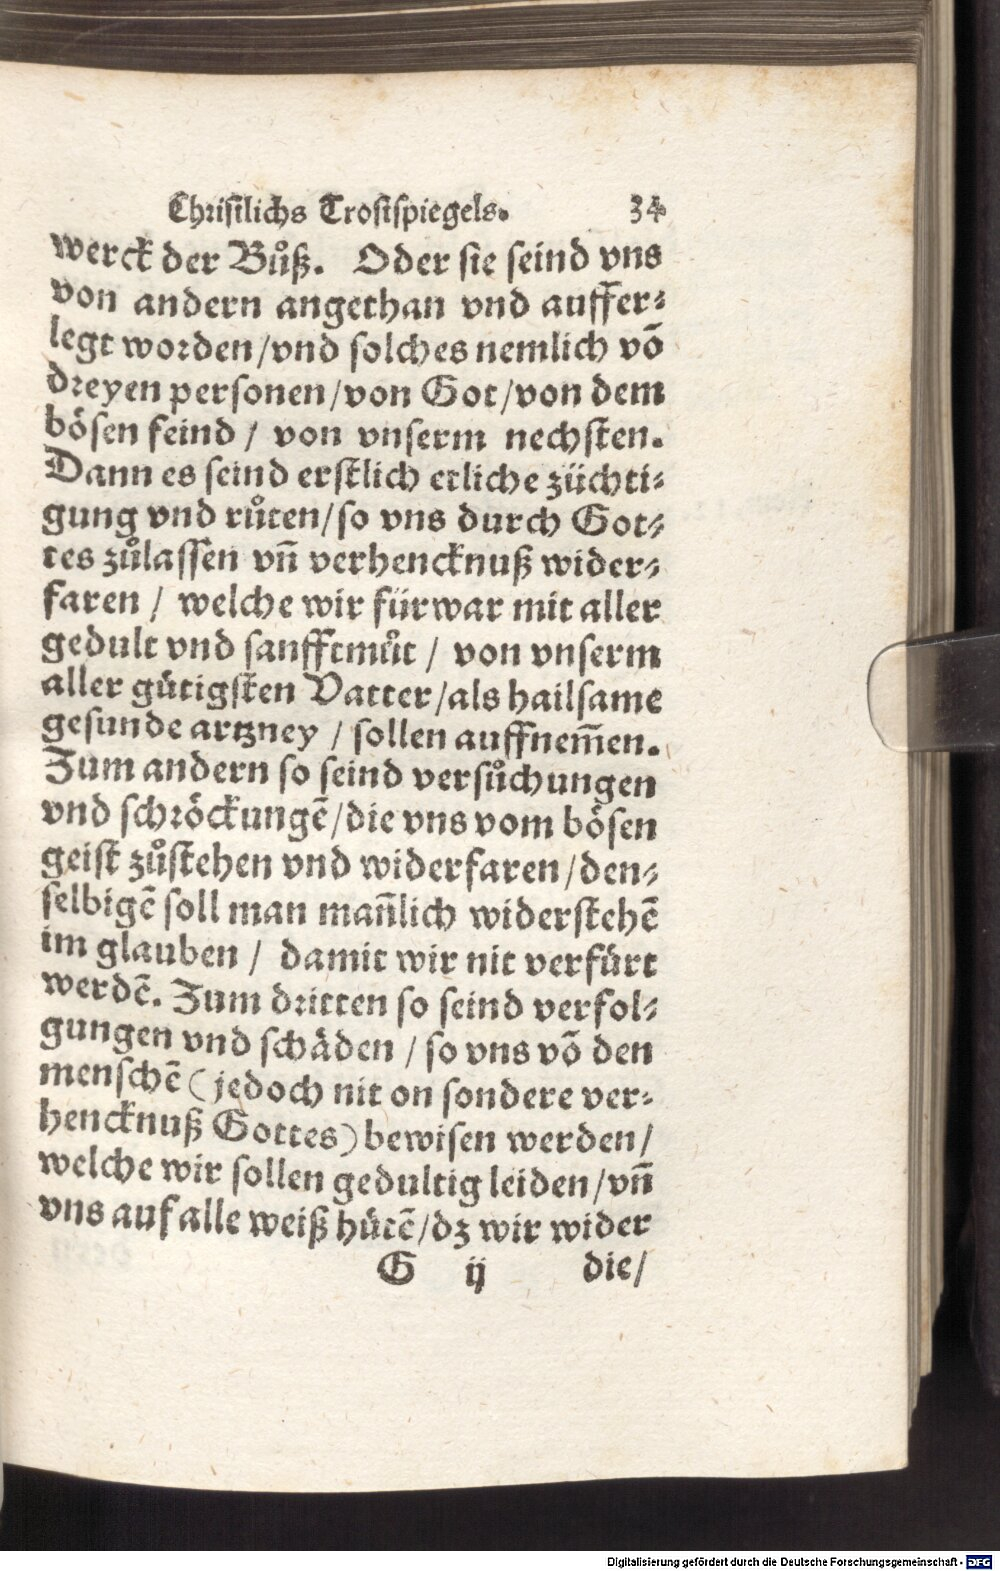 Christlichs Trostspiegels. 34
werck der Bůß. Oder sie seind vns
von andern angethan vnd auffer⸗
legt worden/vnd solches nemlich võ
dreyen personen/von Got/von dem
bösen feind / von vnserm nechsten.
Dann es seind erstlich etliche züchti⸗
gung vnd růten/so vns durch Got⸗
tes zůlassen vñ verhencknuß wider⸗
faren / welche wir fürwar mit aller
gedult vnd sanfftmůt / von vnserm
aller gütigsten Vatter/als hailsame
gesunde artzney / sollen auffnem̃en.
Zum andern so seind versůchungen
vnd schröckungẽ/die vns vom bösen
geist zůstehen vnd widerfaren/den⸗
selbigẽ soll man mañlich widerstehẽ
im glauben / damit wir nit verfürt
werdẽ. Zum dritten so seind verfol⸗
gungen vnd schäden / so vns võ den
menschẽ (jedoch nit on sondere ver⸗
hencknuß Gottes) bewisen werden/
welche wir sollen gedultig leiden/vñ
vns auf alle weiß hütẽ/dz wir wider
G ij die/
Digitalisierung gefördert durch die Deutsche Forschungsgemeinschaft - DFG